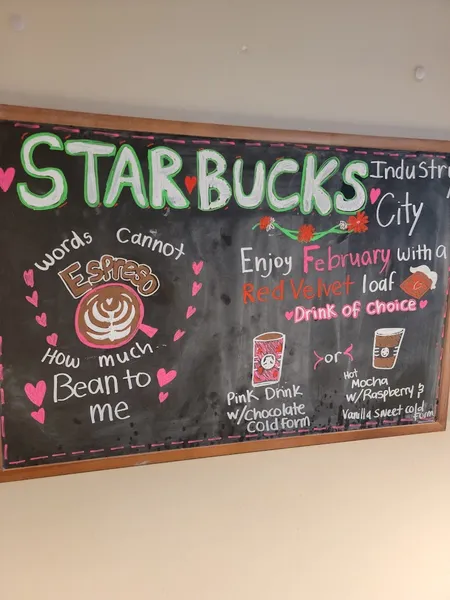 STARBUCKS
Industry
City
Words Cannot
Espresso
How much
Bean to
me
Enjoy February with a
Red Velvet loaf
Drink of choice
Pink Drink
w/chocolate
Cold Form
or
Hot
Mocha
w/Raspberry &
Vanilla sweet cold
form